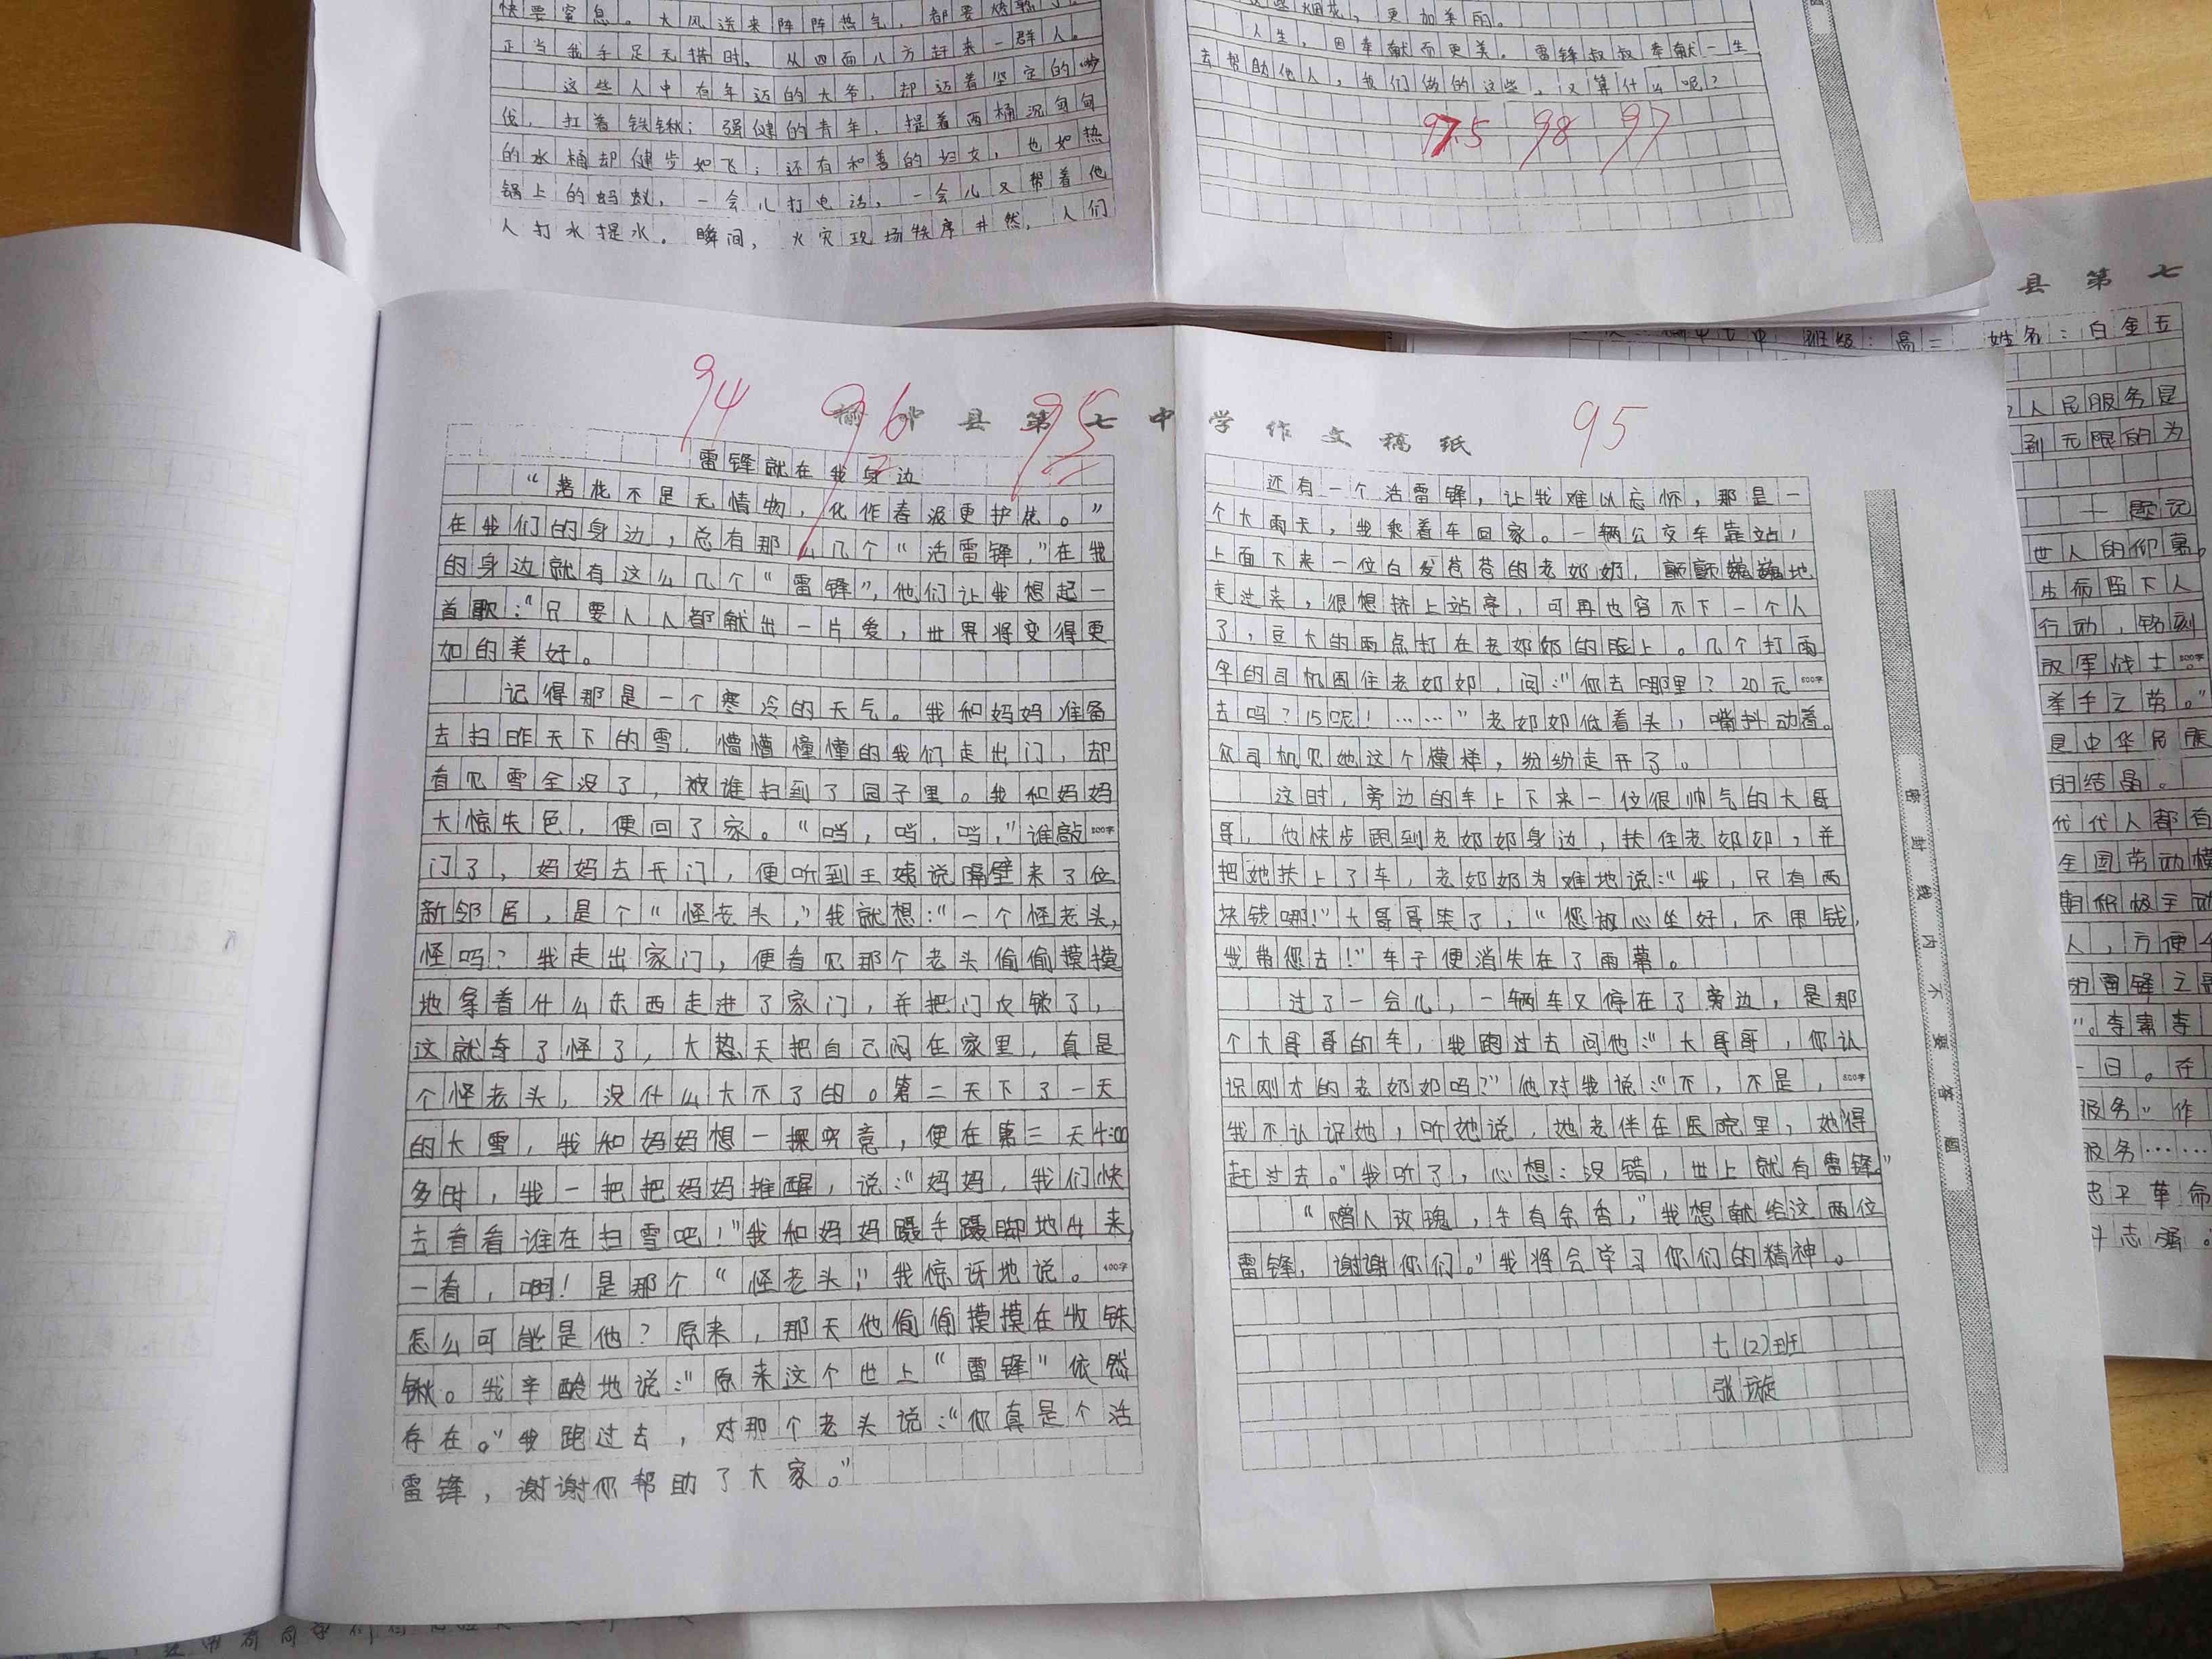 快要窒息。大风送来阵阵热气,都要烧
正当我手足无措时,从四面八方赶来一群人。
这些人中有年迈的大爷,却迈着坚定的步
伐,扛着铁锹;强健的青年,提着两桶沉甸甸
的水桶却健步如飞;还有和善的妇女,也如热
锅上的蚂蚁,一会儿打电话,一会儿又帮着他
人打水提水。瞬间,火灾现场秩序井然,人们
更加美丽。
人生,因奉献而更美。雷锋叔叔奉献一生,
去帮助他人,我们做的这些,又算什么呢?
97.5 98 97
94 96 95
榆中县第七中学作文稿纸
95
雷锋就在我身边
“落花不是无情物,化作春泥更护花。”
在我们的身边,总有那么几个“活雷锋,”在我
的身边就有这么几个“雷锋”,他们让我想起一
首歌:“只要人人都献出一片爱,世界将变得更
加的美好。
记得那是一个寒冷的天气。我和妈妈准备
去扫昨天下的雪,懵懵懂懂的我们走出门,却
看见雪全没了,被谁扫到了园子里。我和妈妈
大惊失色,便回了家。“咣,咣,咣,”谁敲
门了,妈妈去开门,便听到王姨说隔壁来了位
新邻居,是个“怪老头,”我就想:“一个怪老头,
怪吗?我走出家门,便看见那个老头偷偷摸摸
地拿着什么东西走进了家门,并把门反锁了,
这就奇了怪了,大热天把自己闷在家里,真是
个怪老头,没什么大不了的。第二天下了一天
的大雪,我和妈妈想一探究竟,便在第三天4:00
多时,我一把把妈妈推醒,说:“妈妈,我们快
去看看谁在扫雪吧!”我和妈妈蹑手蹑脚地出来,
一看,啊!是那个“怪老头,”我惊讶地说。
怎么可能是他?原来,那天他偷偷摸摸在收铁
锹。我辛酸地说:“原来这个世上“雷锋”依然
存在。”我跑过去,对那个老头说:“你真是个活
雷锋,谢谢你帮助了大家。”
还有一个活雷锋,让我难以忘怀,那是一
个大雨天,我乘着车回家。一辆公交车靠站,
上面下来一位白发苍苍的老奶奶,颤颤巍巍地
走过来,很想挤上站亭,可再也容不下一个人
了,豆大的雨点打在老奶奶的脸上。几个打雨
伞的司机围住老奶奶,问:“你去哪里?20元
去吗?15呢!……”老奶奶低着头,嘴抖动着。
众司机见她这个模样,纷纷走开了。
这时,旁边的车上下来一位很帅气的大哥
哥,他快步跑到老奶奶身边,扶住老奶奶,并
把她扶上了车,老奶奶为难地说:“我,只有两
块钱哪!”大哥哥笑了,“您放心坐好,不用钱,
我带您去!”车子便消失在了雨幕。
过了一会儿,一辆车又停在了旁边,是那
个大哥哥的车,我跑过去问他:“大哥哥,你认
识刚才的老奶奶吗?”他对我说:“不,不是,
我不认识她,听她说,她老伴在医院里,她得
赶过去。”我听了,心想:没错,世上就有雷锋。”
“赠人玫瑰,手有余香,”我想献给这两位
雷锋,谢谢你们。”我将会学习你们的精神。
七(2)班
张璇
密封线内不要答题
县第七
班级:高二 姓名:白金五
人民服务是
到无限的为
——题记
世人的仰慕。
生病留下人
行动,铭刻
放军战士
举手之劳。”
是中华民族
的结晶。
代代人都有
全国劳动模
期积极主动
人,方便
的雷锋之
”。李素李
一日。在
服务”作
服务……
忠于革命
斗志强。